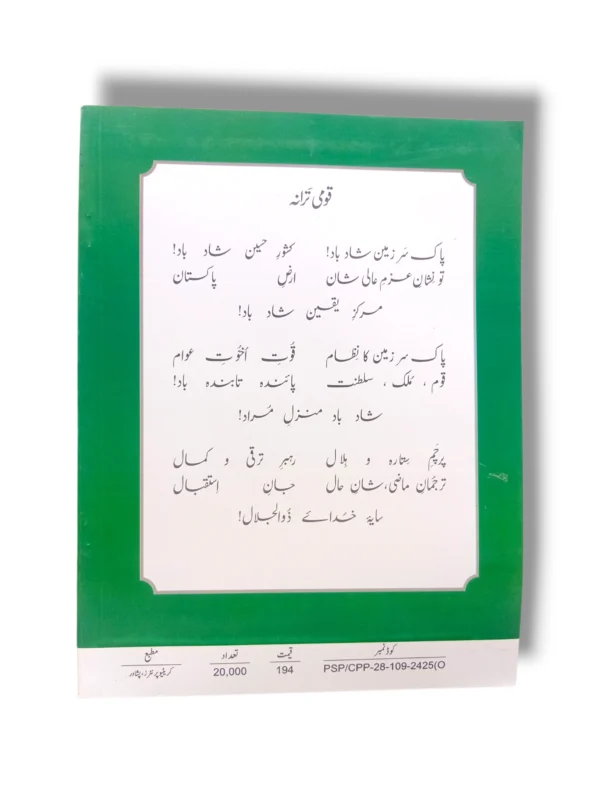 قومی ترانہ
پاک سَرزمین شاد باد! کشورِ حسین شاد باد!
تو نِشانِ عزمِ عالی شان ارضِ پاکستان
مرکزِ یقین شاد باد!
پاک سرزمین کا نِظام قُوّتِ اُخُوّتِ عوام
قوم ، مُلک ، سلطنت پائندہ تابندہ باد!
شاد باد منزلِ مُراد!
پرچَمِ سِتارہ و ہلال رہبرِ ترقی و کمال
ترجمانِ ماضی، شانِ حال جانِ اِستقبال
سایۂ خُدائے ذُوالجلال!
کوڈ نمبر قیمت تعداد مطبع
PSP/CPP-28-109-2425(O 194 20,000 کریٹیو پرنٹرز، پشاور